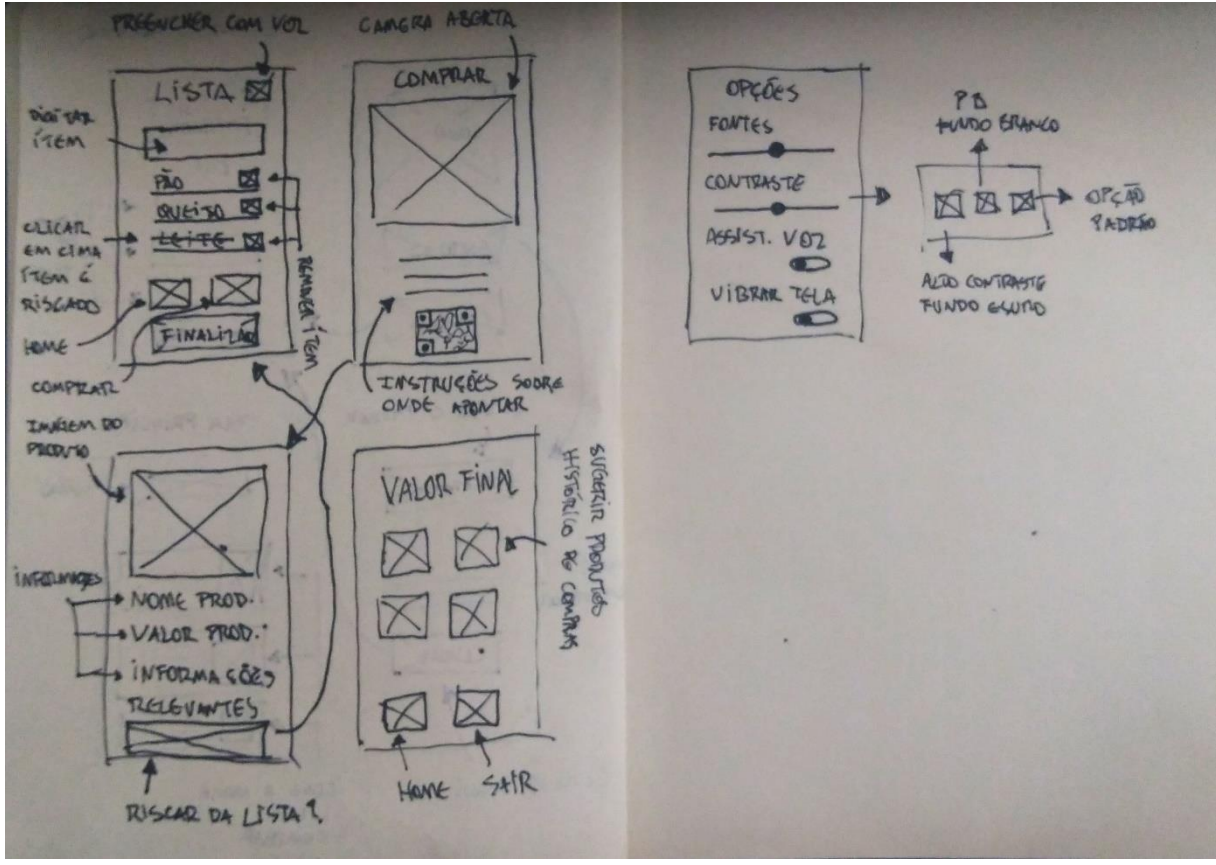 PREENCHER COM VOZ
LISTA
DIGITAR
ÍTEM
PÃO
QUEIJO
LEITE
CLICAR
EM CIMA
ÍTEM É
RISCADO
REMOVER ÍTEM
HOME
COMPRAR
FINALIZAR
CAMERA ABERTA
COMPRAR
INSTRUÇÕES SOBRE
ONDE APONTAR
IMAGEM DO
PRODUTO
INFORMAÇÕES
NOME PROD.
VALOR PROD.
INFORMAÇÕES
RELEVANTES
RISCAR DA LISTA?
VALOR FINAL
SUGERIR PRODUTOS
HISTÓRICO DE COMPRAS
HOME
SAIR
OPÇÕES
FONTES
CONTRASTE
ASSIST. VOZ
VIBRAR TELA
PB
FUNDO BRANCO
OPÇÃO
PADRÃO
ALTO CONTRASTE
FUNDO ESCURO